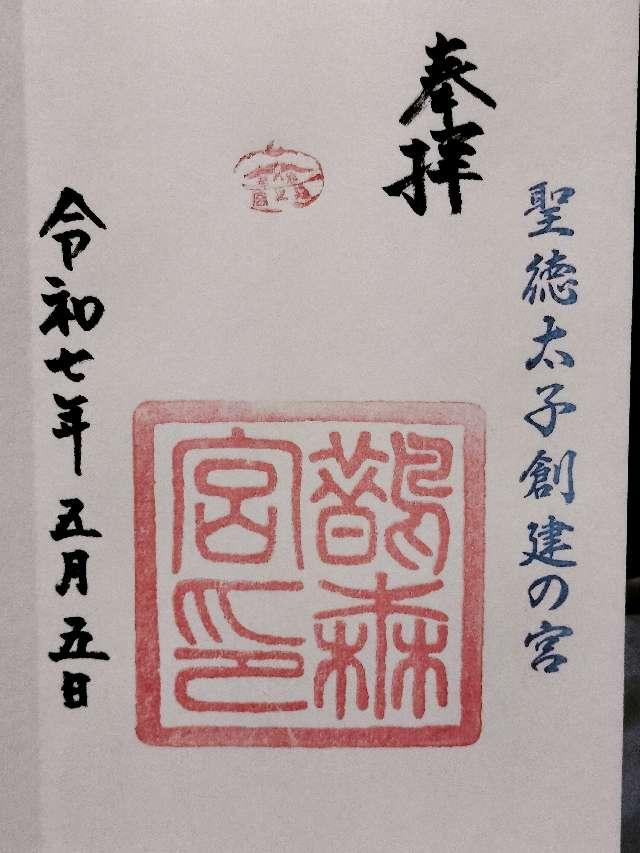 聖徳太子創建の宮
奉拝
鵲森
宮印
令和七年五月五日